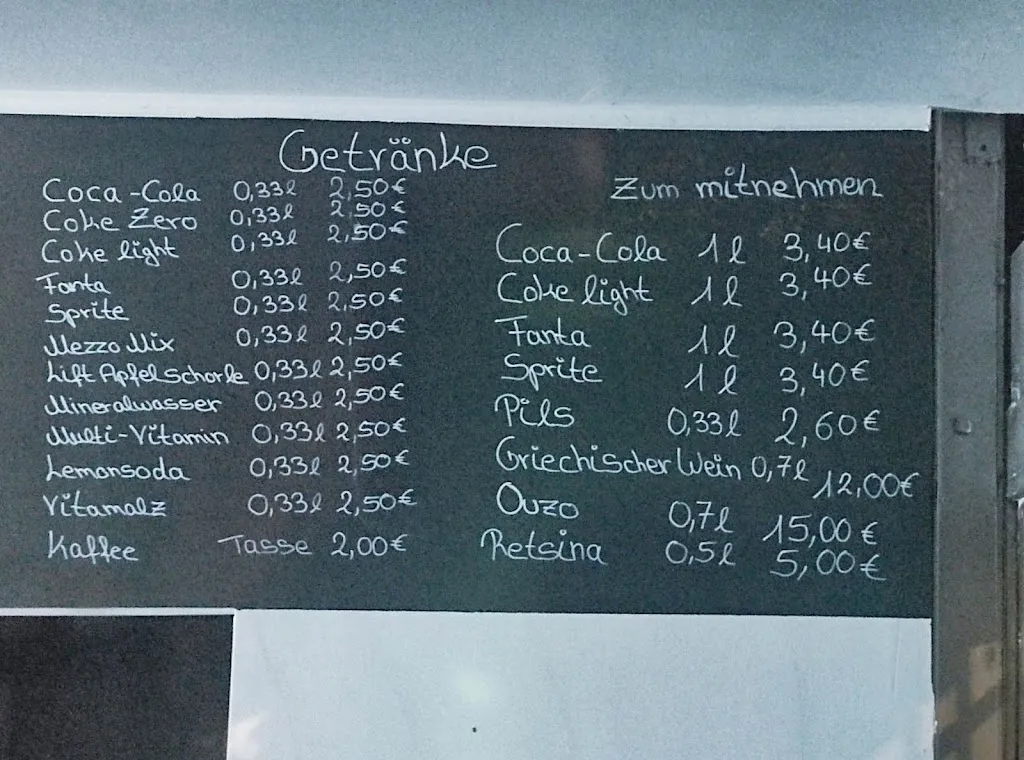 Getränke
Coca-Cola 0,33l 2,50€
Coke Zero 0,33l 2,50€
Coke light 0,33l 2,50€
Fanta 0,33l 2,50€
Sprite 0,33l 2,50€
Mezzo Mix 0,33l 2,50€
Lift Apfelschorle 0,33l 2,50€
Mineralwasser 0,33l 2,50€
Multi-Vitamin 0,33l 2,50€
Lemonsoda 0,33l 2,50€
Vitamalz 0,33l 2,50€
Kaffee Tasse 2,00€
Zum mitnehmen
Coca-Cola 1l 3,40€
Coke light 1l 3,40€
Fanta 1l 3,40€
Sprite 1l 3,40€
Pils 0,33l 2,60€
Griechischer Wein 0,7l 12,00€
Ouzo 0,7l 15,00€
Retsina 0,5l 5,00€